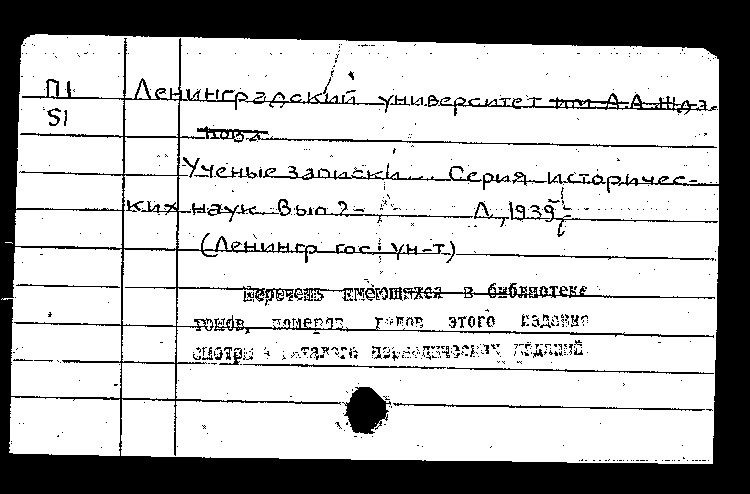 П1 Ленинградский университет им А.А.Жда-
S1 нова
Ученые записки... Серия историчес-
ких наук. Вып 2- Л., 1939-
(Ленингр гос. ун-т)
Перечень имеющихся в библиотеке
томов, номеров, годов этого издания
смотри в каталоге периодических изданий